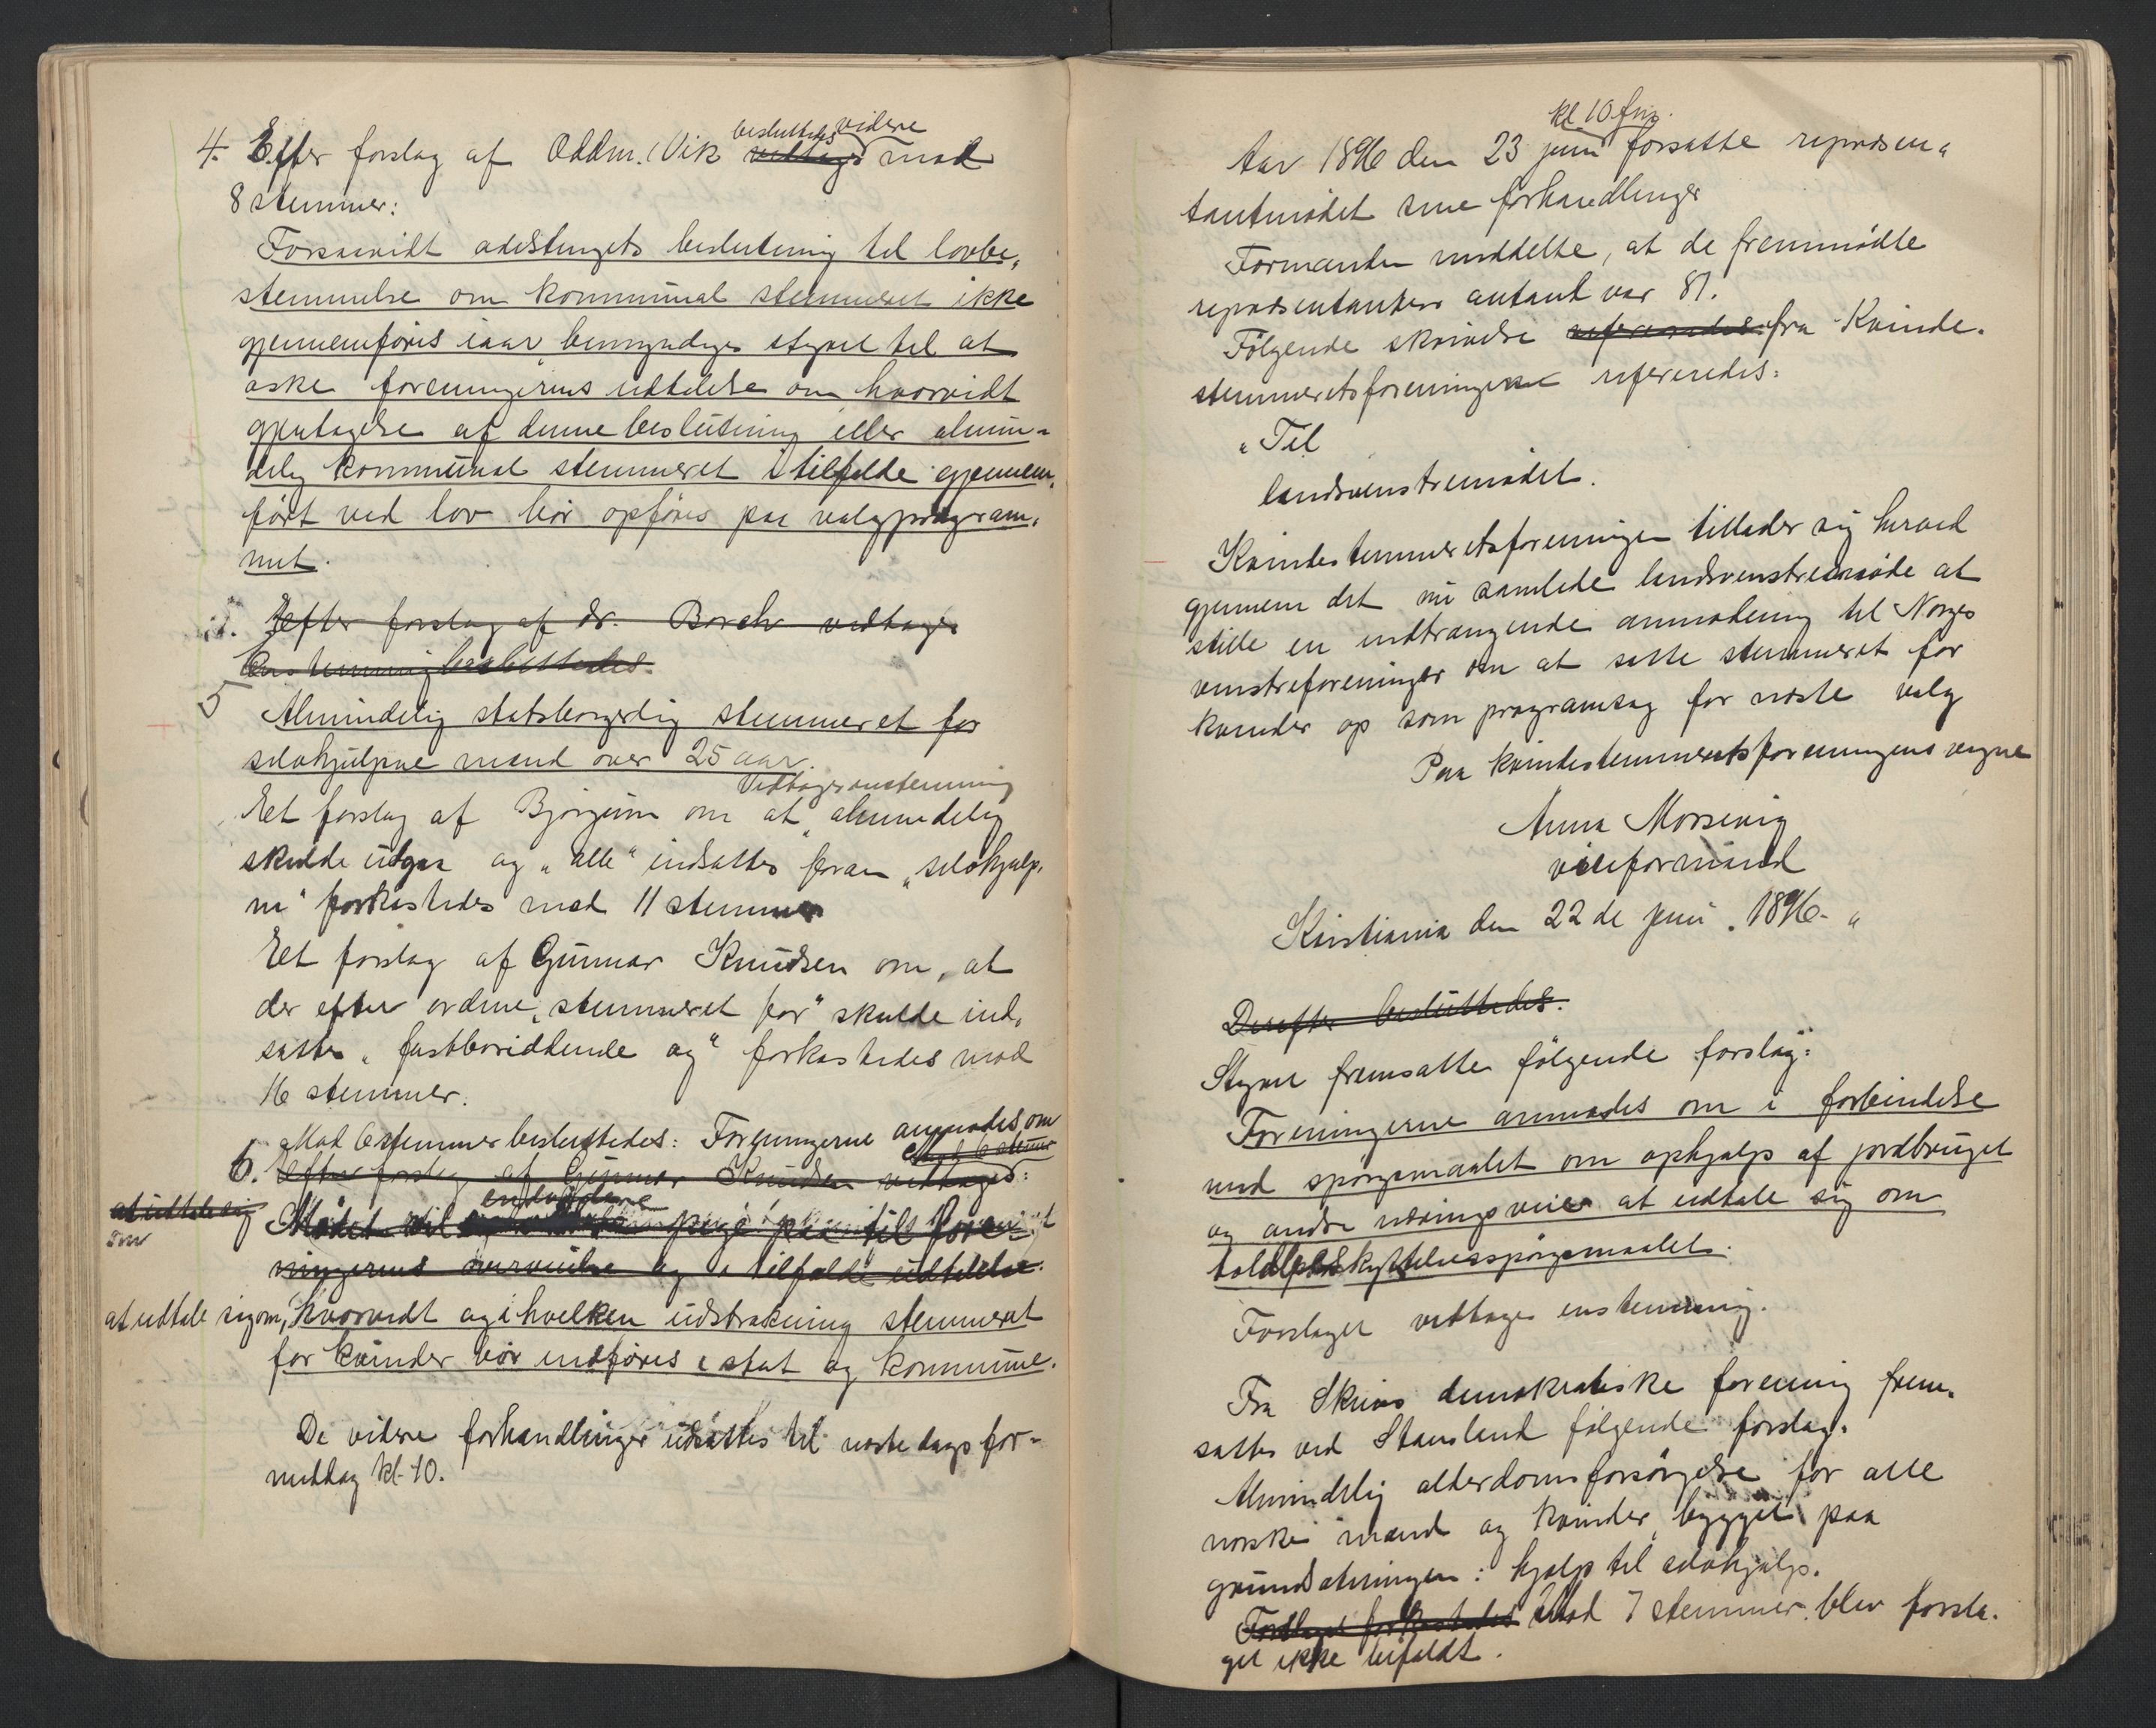 4. Efter forslag af Oddm. Vik besluttedes videre vedtoges mod
8 stemmer:
Forsaavidt odelstingets beslutning til lovbe-
stemmelse om kommunal stemmeret ikke
gjennemføres iaar, bemyndiges styret til at
æske foreningernes udtalelse om hvorvidt
gjentagelse af denne beslutning eller almin-
delig kommunal stemmeret i tilfælde gjennem-
ført ved lov bør opføres paa valgprogram-
met.
5. Efter forslag af dr. Borch vedtages
Enstemmig besluttedes.
5 Almindelig statsborgerlig stemmeret for
selvhjulpne mænd over 25 aar.
Vedtoges enstemmig
Et forslag af Bjørgum om at „almindelig
skulde udgaa og „alle“ indsættes foran „selvhjulp-
ne“ forkastedes mod 11 stemmer
Et forslag af Gunnar Knudsen om, at
der efter ordene „stemmeret for“ skulde ind-
sættes „fastboriddende og“ forkastedes mod
16 stemmer.
Mod 6 stemmer besluttedes: Foreningerne anmodes om
6. Efter forslag af Gunnar Knudsen vedtages: mod 6 stemmer
at udtale sig om
Mødet vil endvidere pege paa til foren-
ingernes overveielse og i tilfælde udtalelse
at udtale sig om, hvorvidt og i hvilken udstrækning stemmeret
for kvinder bør indføres i stat og kommune.
De videre forhandlinger udsattes til næste dags for-
middag kl. 10.
kl. 10 fm.
Aar 1896 den 23 juni forsatte repræsen-
tantmødet sine forhandlinger
Formanden meddelte, at de fremmødte
repræsentanters antal var 81.
Følgende skrivelse refereredes fra Kvinde-
stemmeretsforeningen refereredes:
„Til
landsvenstremødet.
Kvindestemmeretsforeningen tillader sig herved
gjennem det nu samlede landsvenstremøde at
stille en indtrængende anmodning til Norges
venstreforeninger om at sætte stemmeret for
kvinder op som programsag for næste valg
Paa kvindestemmeretsforeningens vegne
Anna Morsevig
viceformand
Kristiania den 22 de juni 1896. “
Derefter besluttedes.
Styret fremsatte følgende forslag:
Foreningerne anmodes om i forbindelse
med spørgsmaalet om ophjælp af jordbruget
og andre næringsveie at udtale sig om
toldbeskyttelsesspørgsmaalet.
Forslaget vedtages enstemmig.
Fra Skiens demokratiske forening frem-
sattes ved Stousland følgende forslag:
Almindelig alderdomsforsørgelse for alle
norske mænd og kvinder, bygget paa
grundsætningen: hjælp til selvhjælp.
Forslaget forkastedes Mod 7 stemmer blev forsla-
get ikke bifaldt.